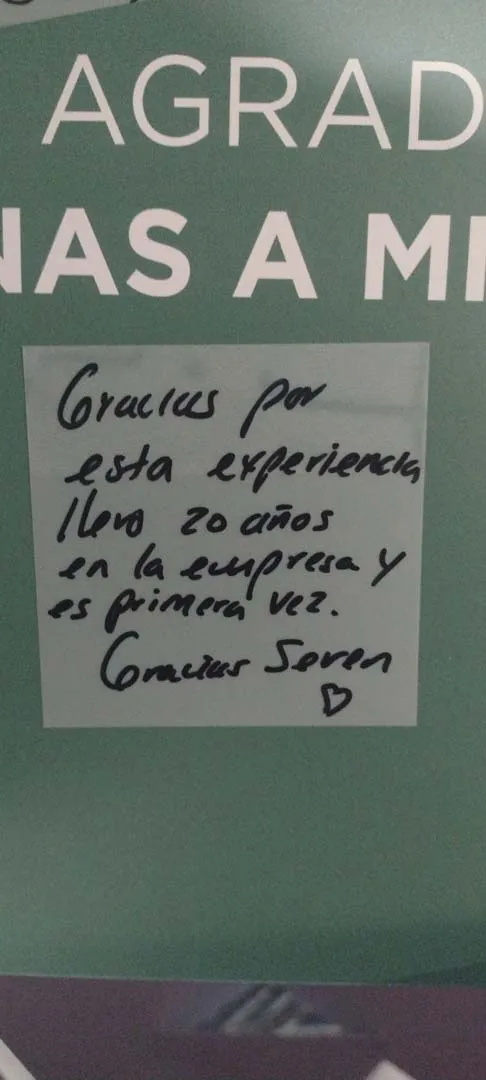 AGRAD
NAS A MI
Gracias por
esta experiencia
llevo 20 años
en la empresa y
es primera vez.
Gracias Seven